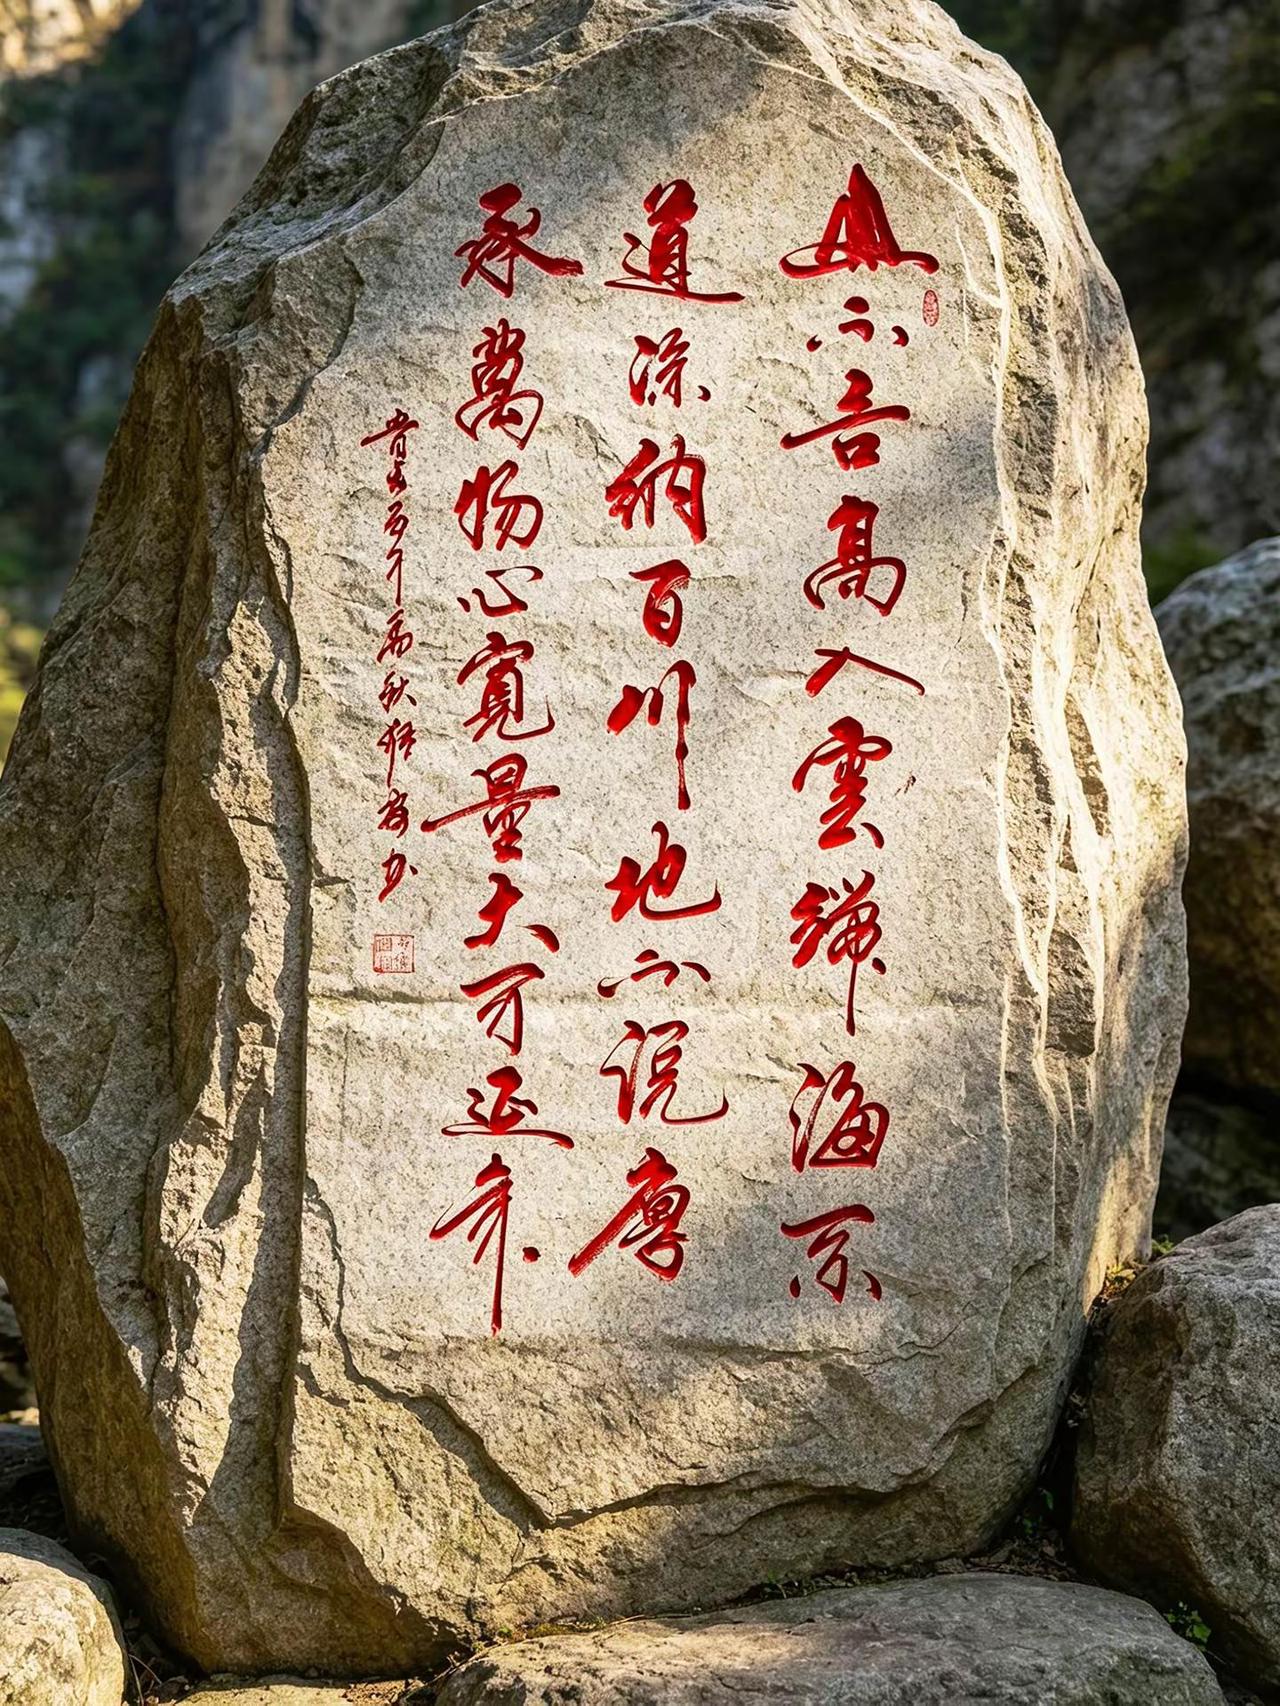 山不言高入雲端海不
道深納百川地不说厚
承萬物心寬量大可延年
丙午 秋 书